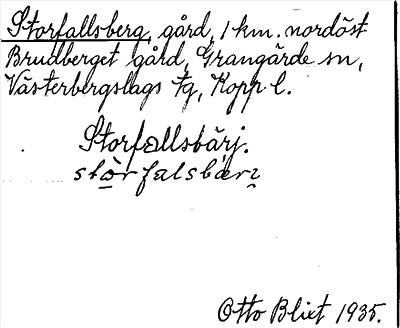 Storfallsberg, gård, 1 km. nordöst
Brudberget gård, Grangärde sn,
Västerbergslags tg, Kopp. l.
Storfallsbärj.
stòrfalsbærj
Otto Blixt 1935.